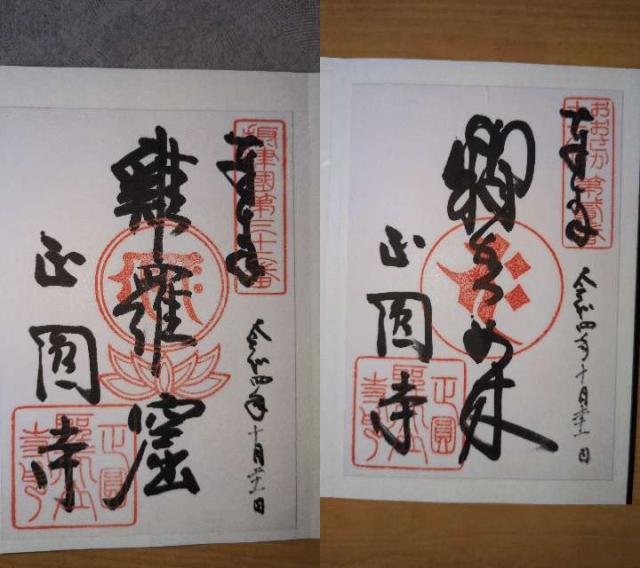 奉拝
津國第三十二番
令和四年十月廿一日
雞羅窟
正圓寺
奉拝
おおさか十三佛第貳番
令和四年十月廿一日
釈迦如来
正圓寺